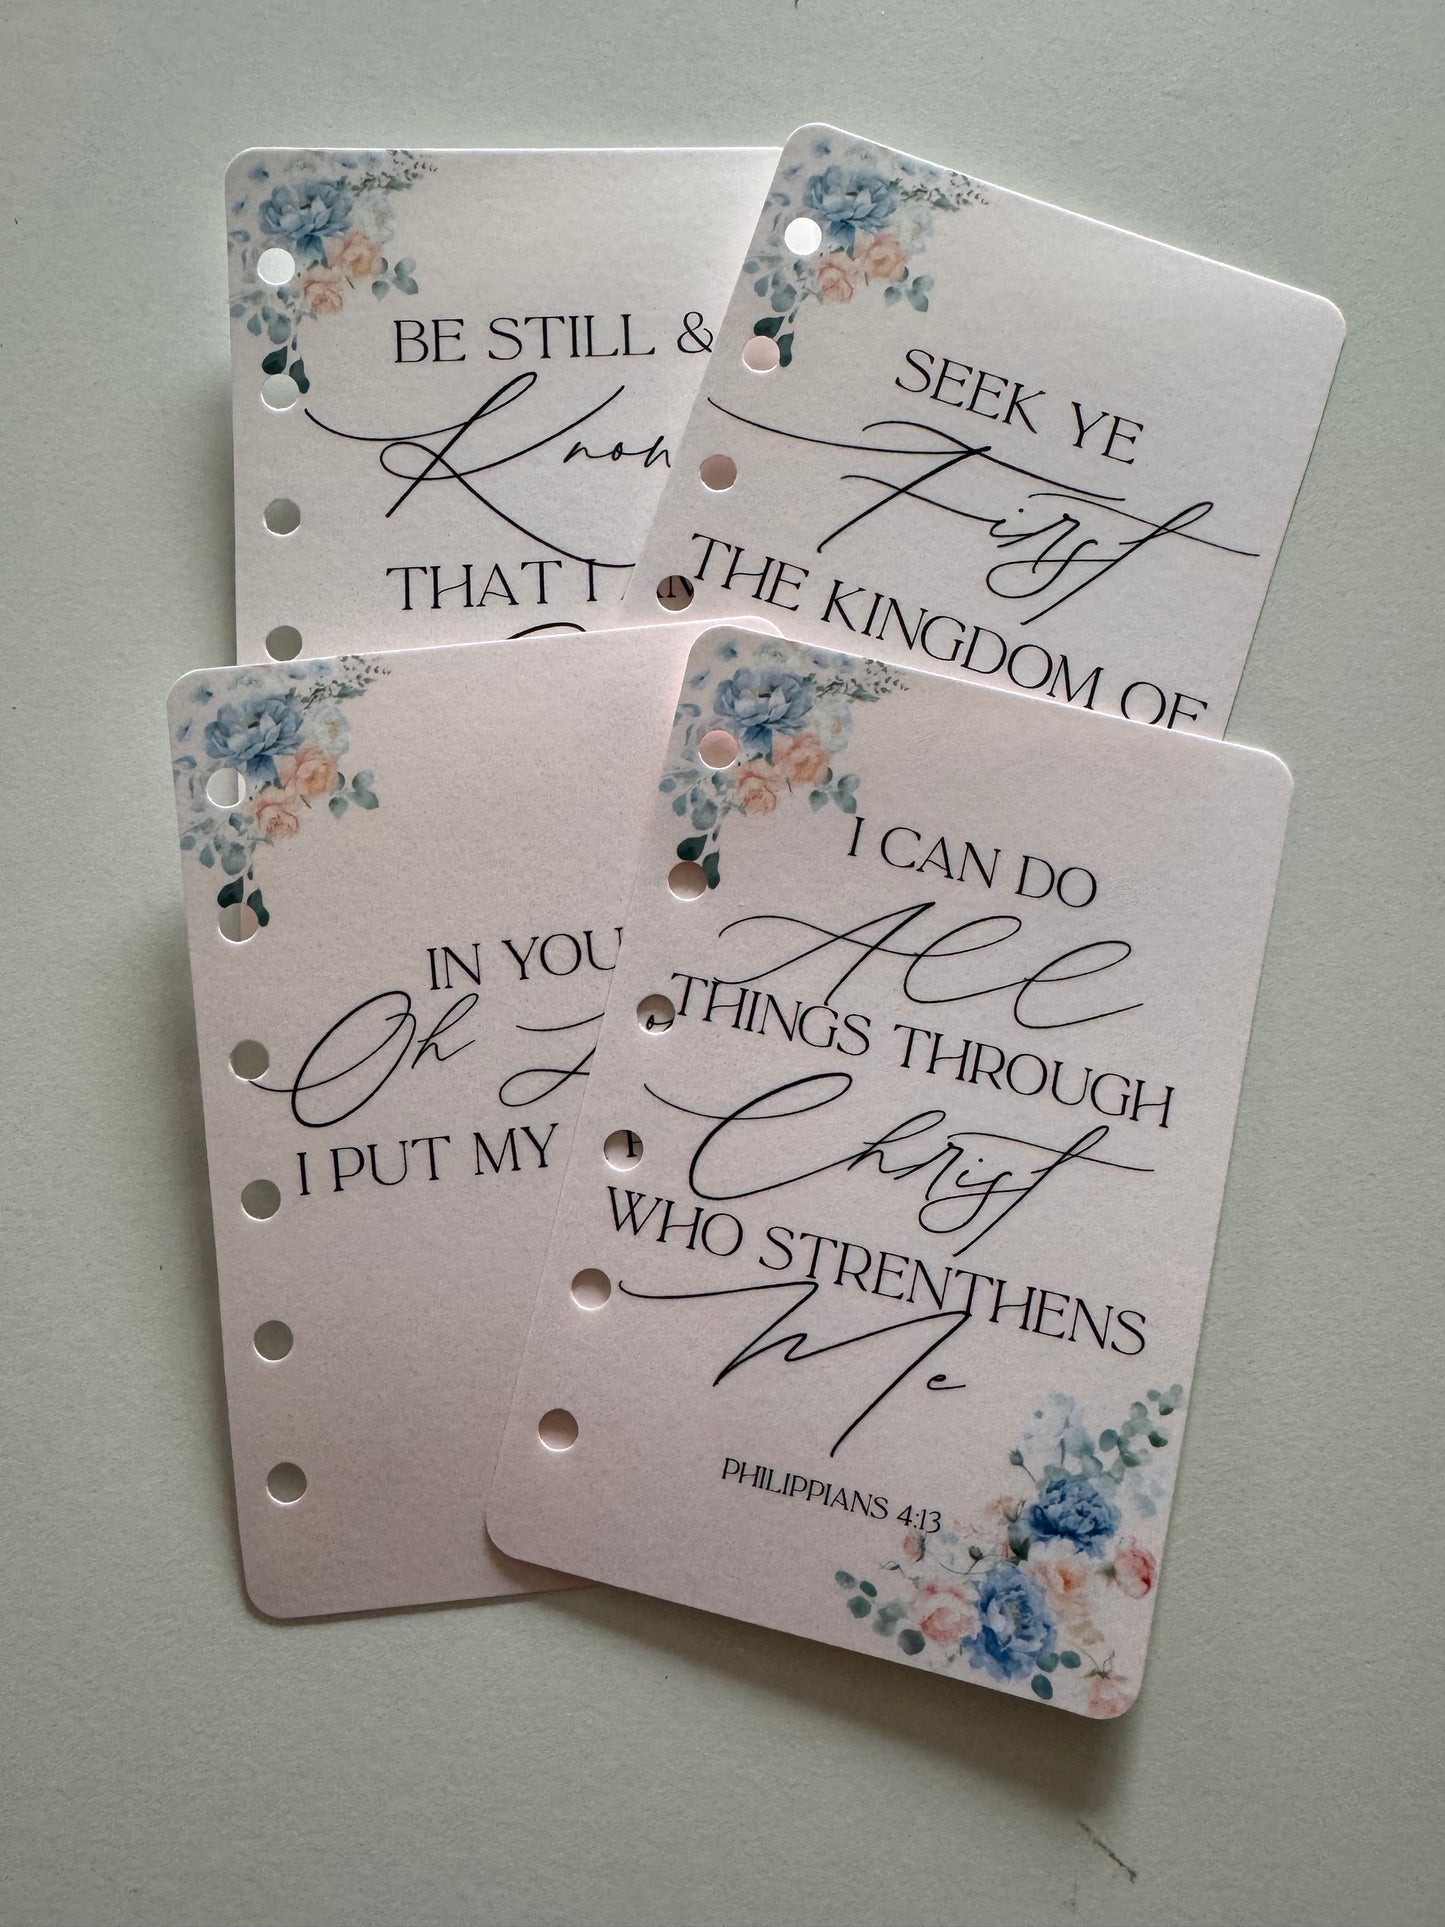 BE STILL &
THAT I
SEEK YE
First
THE KINGDOM OF
IN YOU
Oh
I PUT MY
I CAN DO
All
THINGS THROUGH
Christ
WHO STRENTHENS
Me
PHILIPPIANS 4:13